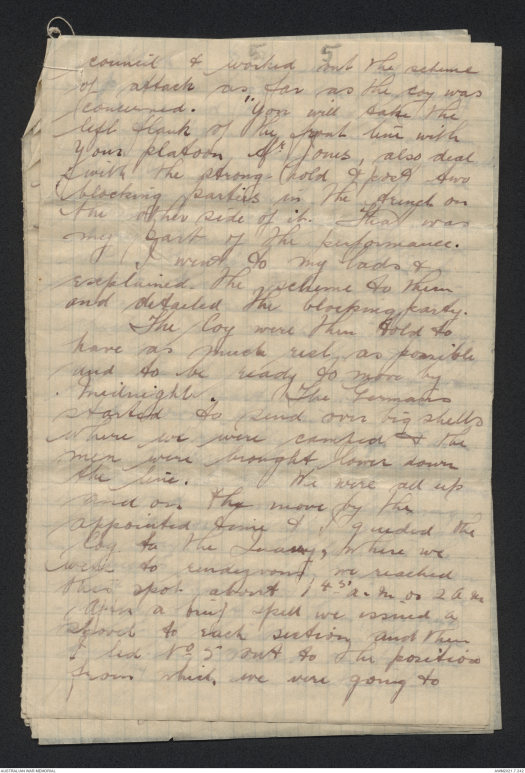 5 5
council & worked out the scheme
of attack as far as the coy was
concerned. "You will take the
left flank of the front line with
your platoon Mr Jones, also deal
with the strong-hold & post two
blocking parties in the trench on
the other side of it. That was
my part of the performance.
I went to my lads &
explained the scheme to them
and detailed the blocking party.
The Coy were then told to
have as much rest as possible
and to be ready to move by
midnight. The Germans
started to send over big shells
where we were camped & the
men were brought lower down
the line. We were all up
and on the move by the
appointed time & I guided the
Coy to the Quarry, where we
were to rendezvous, we reached
this spot about 1 45 a.m. or 2 a.m
After a brief spell we issued a
shovel to each section and then
I led No 5 out to the position
from which we were going to
AUSTRALIAN WAR MEMORIAL